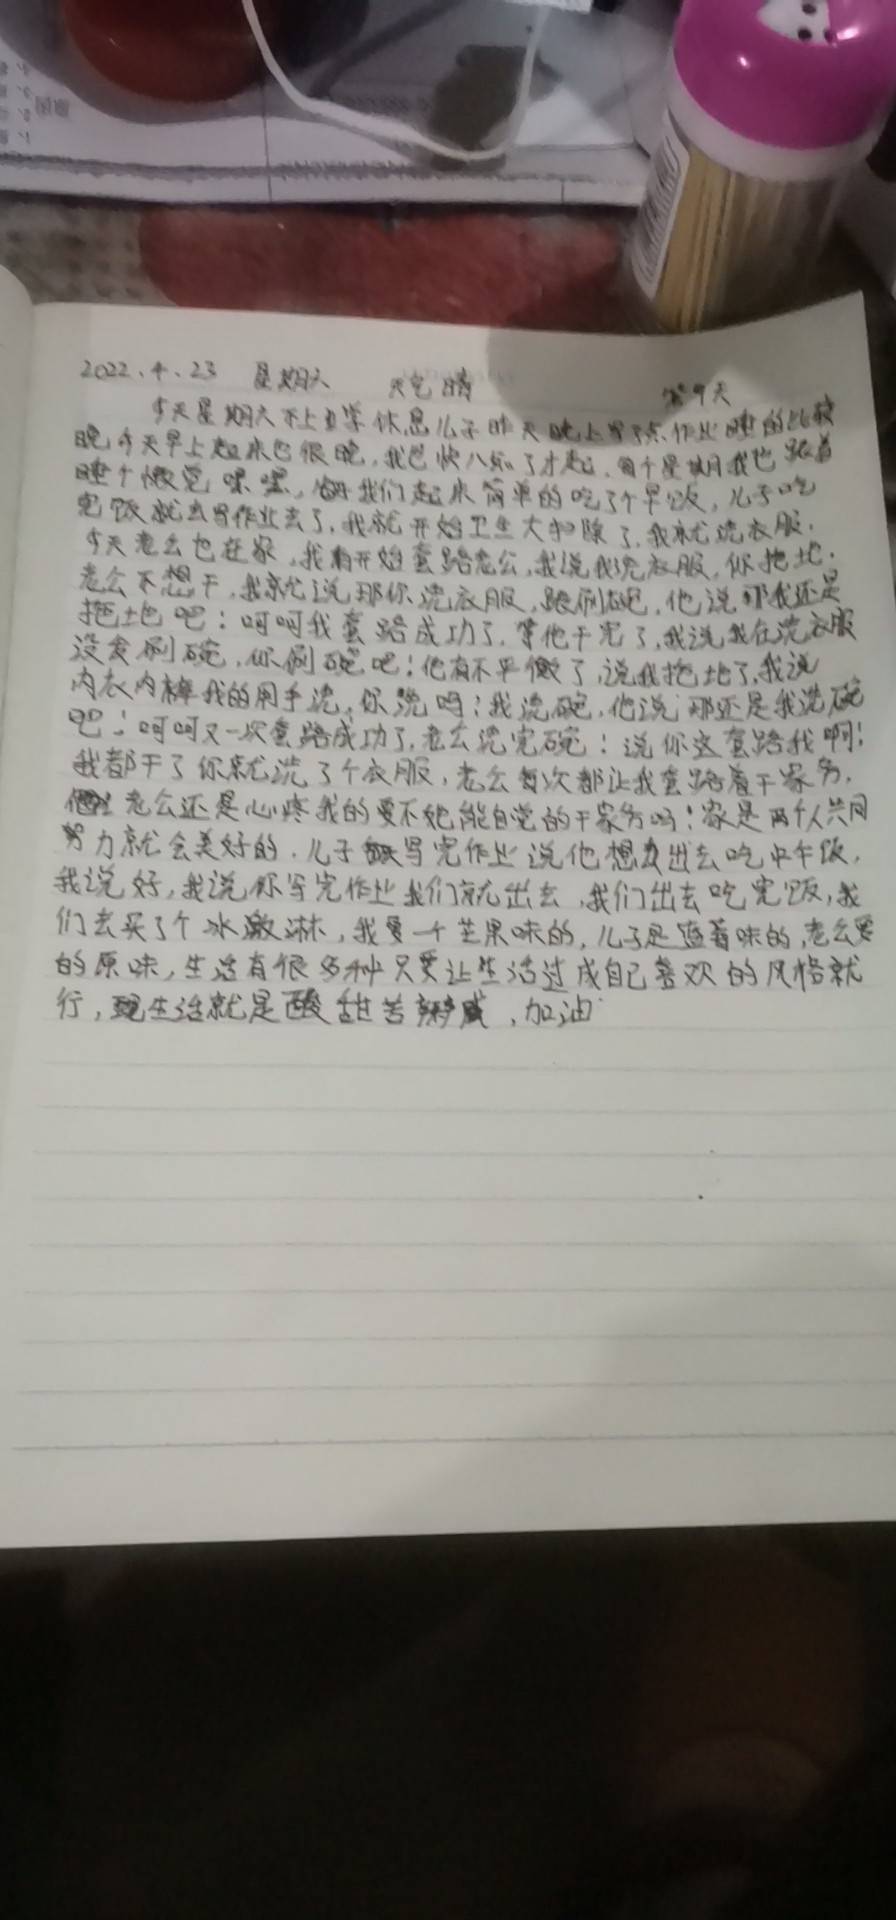 2022.4.23 星期天 天气晴 第9天
今天星期天不上学休息儿子昨天晚上写了点作业睡的比较
晚今天早上起来也很晚,我也快八点了才起,每个星期我也跟着
睡个懒觉嘿嘿,我们起来简单的吃了个早饭,儿子吃
完饭就去写作业去了,我就开始卫生大扫除了,我就洗衣服,
今天老公也在家,我开始套路老公,我说我洗衣服,你拖地.
老公不想干,我就说那你洗衣服,刷碗,他说那我还是
拖地吧!呵呵我套路成功了,等他干完了,我说我在洗衣服
没发刷碗,你刷碗吧!他有不平衡了,说我拖地了,我说
内衣内裤我的用手洗,你洗吗!我洗碗,他说那还是我洗碗
吧!呵呵又一次套路成功了,老公洗完碗!说你这套路我啊!
我都干了你就洗了个衣服,老公每次都让我套路着干家务,
老公还是心疼我的要不她能自觉的干家务吗!家是两个人共同
努力就会美好的.儿子写完作业说他想出去吃中午饭,
我说好,我说你写完作业我们就出去,我们出去吃完饭,我
们去买了个冰激淋,我要一个芒果味的,儿子是蓝莓味的,老公要
的原味,生活有很多种只要让生活过成自己喜欢的风格就
行,生活就是酸甜苦辣咸,加油